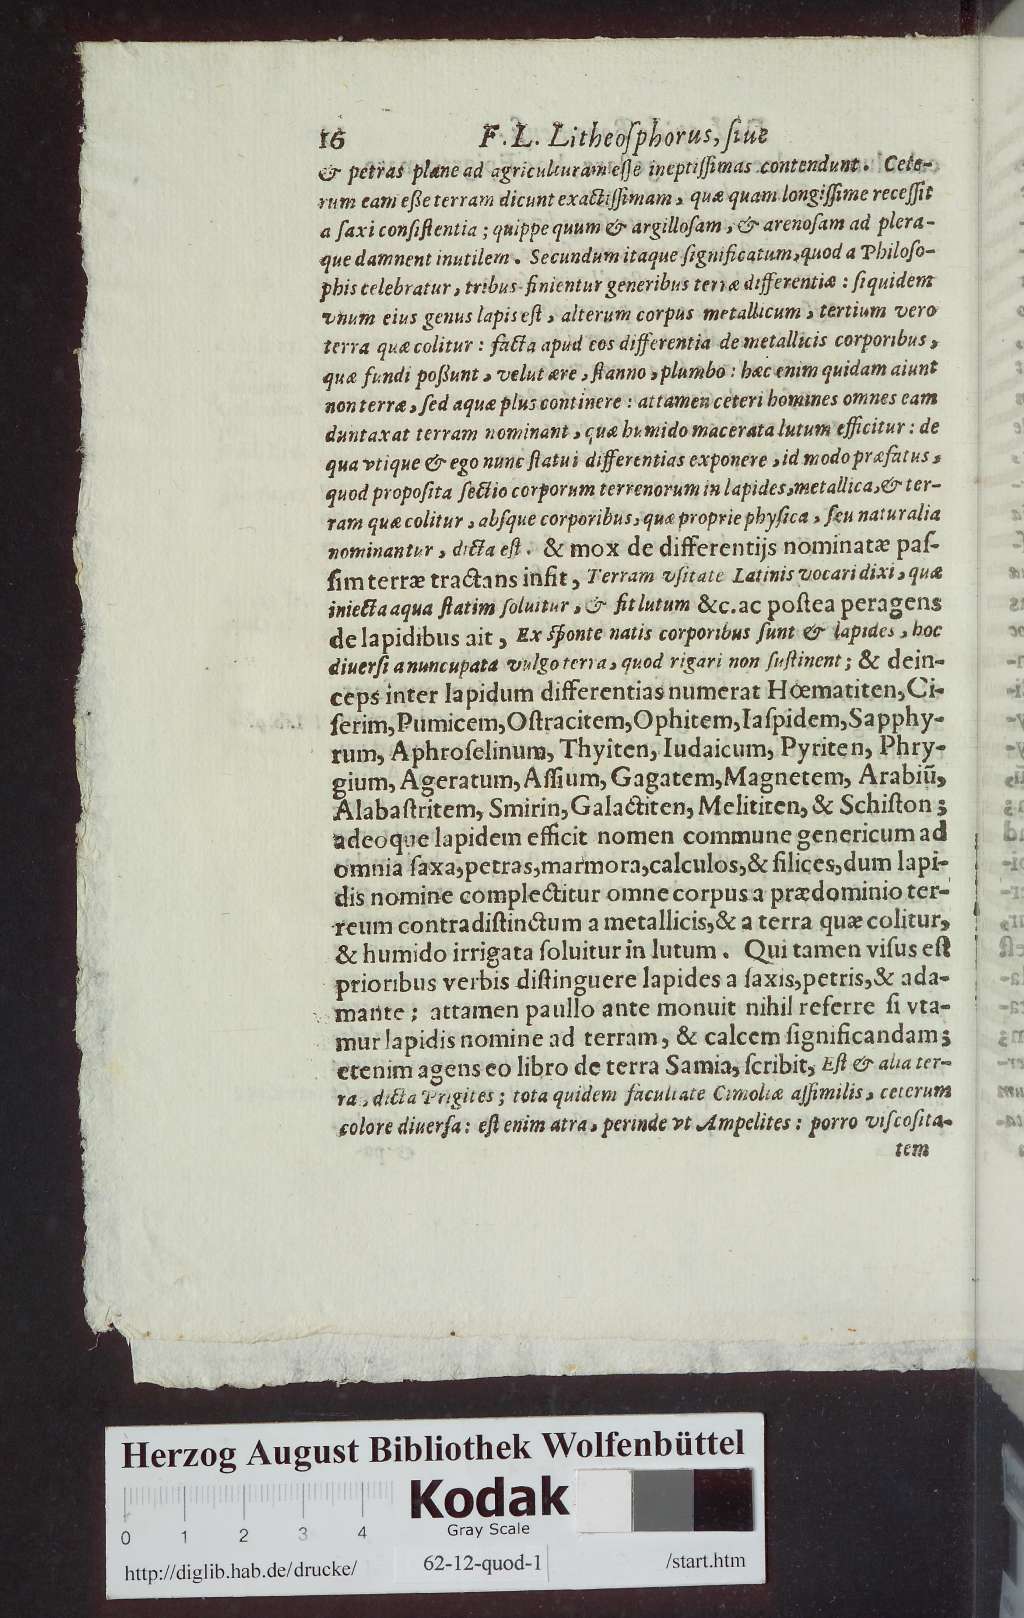 16 F. L. Litheoſphorus, ſiue
& petras plane ad agriculturam eſſe ineptiſſimas contendunt. Cete-
rum eam eße terram dicunt exactiſſimam, quæ quam longiſſime receſſit
a ſaxi conſiſtentia; quippe quum & argilloſam, & arenoſam ad plera-
que damnent inutilem. Secundum itaque ſignificatum, quod a Philoſo-
phis celebratur, tribus finientur generibus terræ differentiæ: ſiquidem
vnum eius genus lapis eſt, alterum corpus metallicum, tertium vero
terra quæ colitur: facta apud eos differentia de metallicis corporibus,
quæ fundi poßunt, velut ære, ſtanno, plumbo: hæc enim quidam aiunt
non terræ, ſed aquæ plus continere: attamen ceteri homines omnes eam
duntaxat terram nominant, quæ humido macerata lutum efficitur: de
qua vtique & ego nunc ſtatui differentias exponere, id modo præfatus,
quod propoſita ſectio corporum terrenorum in lapides, metallica, & ter-
ram quæ colitur, abſque corporibus, quæ proprie phyſica, ſeu naturalia
nominantur, dicta eſt. & mox de differentijs nominatæ paſ-
ſim terræ tractans infit, Terram vſitate Latinis vocari dixi, quæ
iniecta aqua ſtatim ſoluitur, & fit lutum &c. ac poſtea peragens
de lapidibus ait, Ex ſponte natis corporibus ſunt & lapides, hoc
diuerſi a nuncupata vulgo terra, quod rigari non ſuſtinent; & dein-
ceps inter lapidum differentias numerat Hœmatiten, Ci-
ſerim, Pumicem, Oſtracitem, Ophitem, Iaſpidem, Sapphy-
rum, Aphroſelinum, Thyiten, Iudaicum, Pyriten, Phry-
gium, Ageratum, Aſſium, Gagatem, Magnetem, Arabiũ,
Alabaſtritem, Smirin, Galactiten, Melititen, & Schiſton;
adeoque lapidem efficit nomen commune genericum ad
omnia ſaxa, petras, marmora, calculos, & ſilices, dum lapi-
dis nomine complectitur omne corpus a prædominio ter-
reum contradiſtinctum a metallicis, & a terra quæ colitur,
& humido irrigata ſoluitur in lutum. Qui tamen viſus eſt
prioribus verbis diſtinguere lapides a ſaxis, petris, & ada-
mante; attamen paullo ante monuit nihil referre ſi vta-
mur lapidis nomine ad terram, & calcem ſignificandam;
etenim agens eo libro de terra Samia, ſcribit, Eſt & alia ter-
ra, dicta Prigites; tota quidem facultate Cimoliæ aſſimilis, ceterum
colore diuerſa: eſt enim atra, perinde vt Ampelites: porro viſcoſita-
tem
Herzog August Bibliothek Wolfenbüttel
Kodak
Gray Scale
0 1 2 3 4
http://diglib.hab.de/drucke/ 62-12-quod-1 /start.htm